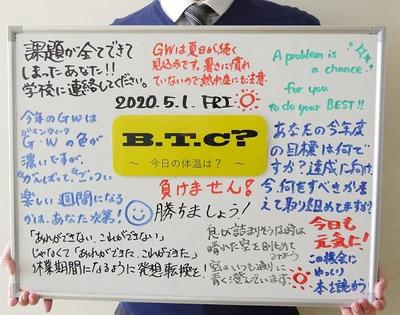 課題が全てできて
しまったあなた!!
学校に連絡してください。
GWは夏日が続く
見込みです。暑さに慣れ
ていないので熱中症にも注意
A problem is
a chance
for you
to do your BEST!!
2020.5.1. FRI
B.T.C?
~ 今日の体温は? ~
今年のGWは
G・Wの色が
濃いですが、
楽しい週間になる
かは、あなた次第!
負けません?
勝ちましょう!
あなたの今年度
の目標は何で
すか?達成に向け
今、何をすべきか考
えて取り組めてますか?
「あれができない、これができない」
じゃなくて「あれができた、これができた」
休業期間になるように発想転換を!
息が詰まりそうな時は
晴れた空を眺めて
みよう
空はいつも通りに
青く澄んでいます。
今日も
元気に!
この機会に
ゆっくり
本を読もう